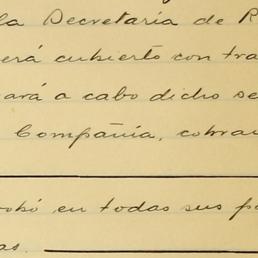 la Secretaría de R
erá cubierto con tra
ará a cabo dicho se
Compañía, cobra
obó en todas sus pa
as.